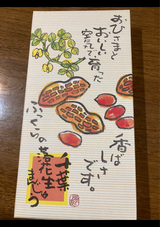 おひさまと
おいしい空気で
育った
香ば
しさ
です。
千葉
ふっくら
落花生
まんじゅう